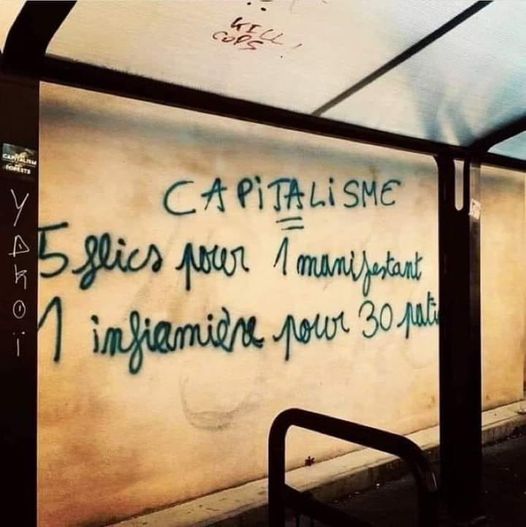 KILL
COPS!
CAPiTALiSME
5 flics pour 1 manifestant
1 infiarmière pour 30 pati
CAPITALISM
FORESTS
YAKOï